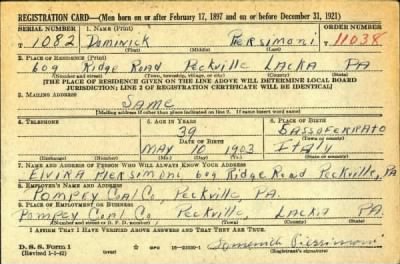 REGISTRATION CARD—(Men born on or after February 17, 1897 and on or before December 31, 1921)
SERIAL NUMBER 1. NAME (Print) ORDER NUMBER
T 1082 DOMINICK PIERSIMONI T 11038
(First) (Middle) (Last)
2. PLACE OF RESIDENCE (Print)
609 Ridge Road Peckville LACKA PA
(Number and street) (Town, township, village, or city) (County) (State)
[THE PLACE OF RESIDENCE GIVEN ON THE LINE ABOVE WILL DETERMINE LOCAL BOARD
JURISDICTION; LINE 2 OF REGISTRATION CERTIFICATE WILL BE IDENTICAL]
3. MAILING ADDRESS
SAME
[Mailing address if other than place indicated on line 2. If same insert word same]
4. TELEPHONE 5. AGE IN YEARS 6. PLACE OF BIRTH
39 SASSOFERRATO
DATE OF BIRTH (Town or county)
MAY 10 1903 ITALY
(Exchange) (Number) (Mo.) (Day) (Yr.) (State or country)
7. NAME AND ADDRESS OF PERSON WHO WILL ALWAYS KNOW YOUR ADDRESS
ELVIRA PIERSIMONI 609 Ridge Road Peckville, PA
8. EMPLOYER'S NAME AND ADDRESS
POMPEY COAL CO, PECKVILLE, PA.
9. PLACE OF EMPLOYMENT OR BUSINESS
POMPEY COAL CO. PECKVILLE, LACKA PA.
(Number and street or R. F. D. number) (Town) (County) (State)
I AFFIRM THAT I HAVE VERIFIED ABOVE ANSWERS AND THAT THEY ARE TRUE.
D. S. S. Form 1
(Revised 1-1-42) GPO
(Registrant's signature)